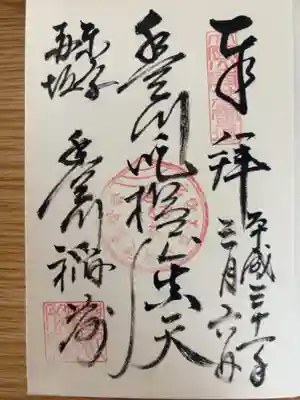 奉拝
平成三十一年
三月六日
豊川吒枳眞天
東京
赤坂
豊川稲荷